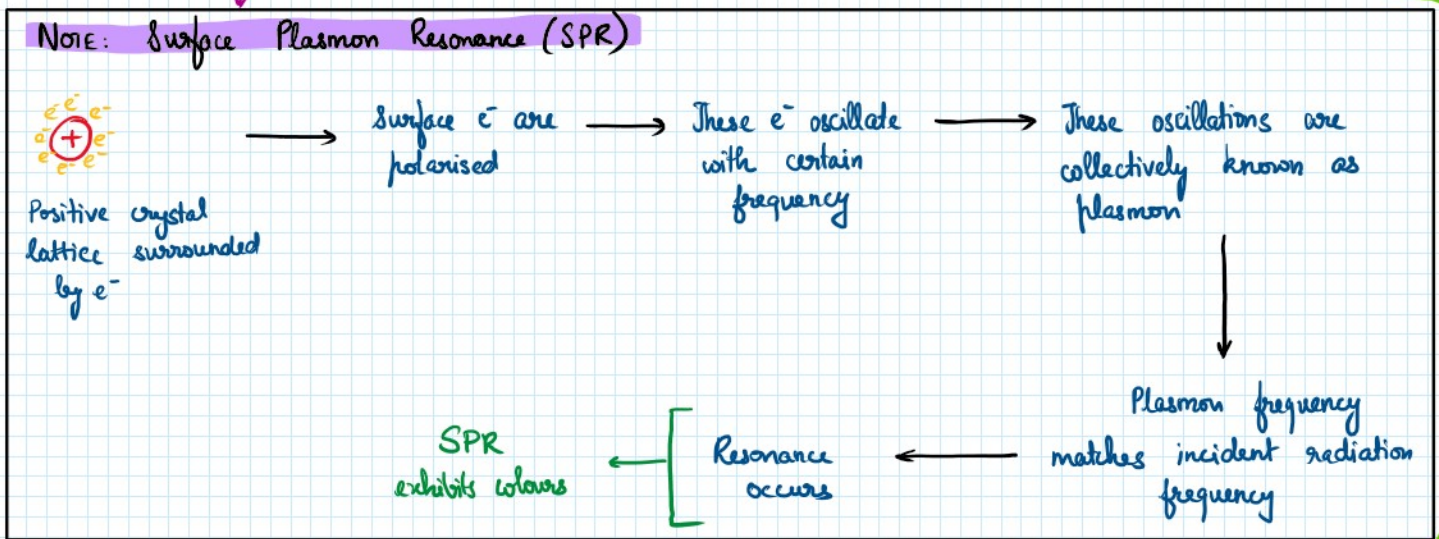 NOTE: Surface Plasmon Resonance (SPR)
e⁻ e⁻ e⁻
e⁻ + e⁻
e⁻ e⁻ e⁻
Positive crystal
lattice surrounded
by e⁻
Surface e⁻ are
polarised
These e⁻ oscillate
with certain
frequency
These oscillations are
collectively known as
plasmon
Plasmon frequency
matches incident radiation
frequency
Resonance
occurs
SPR
exhibits colours